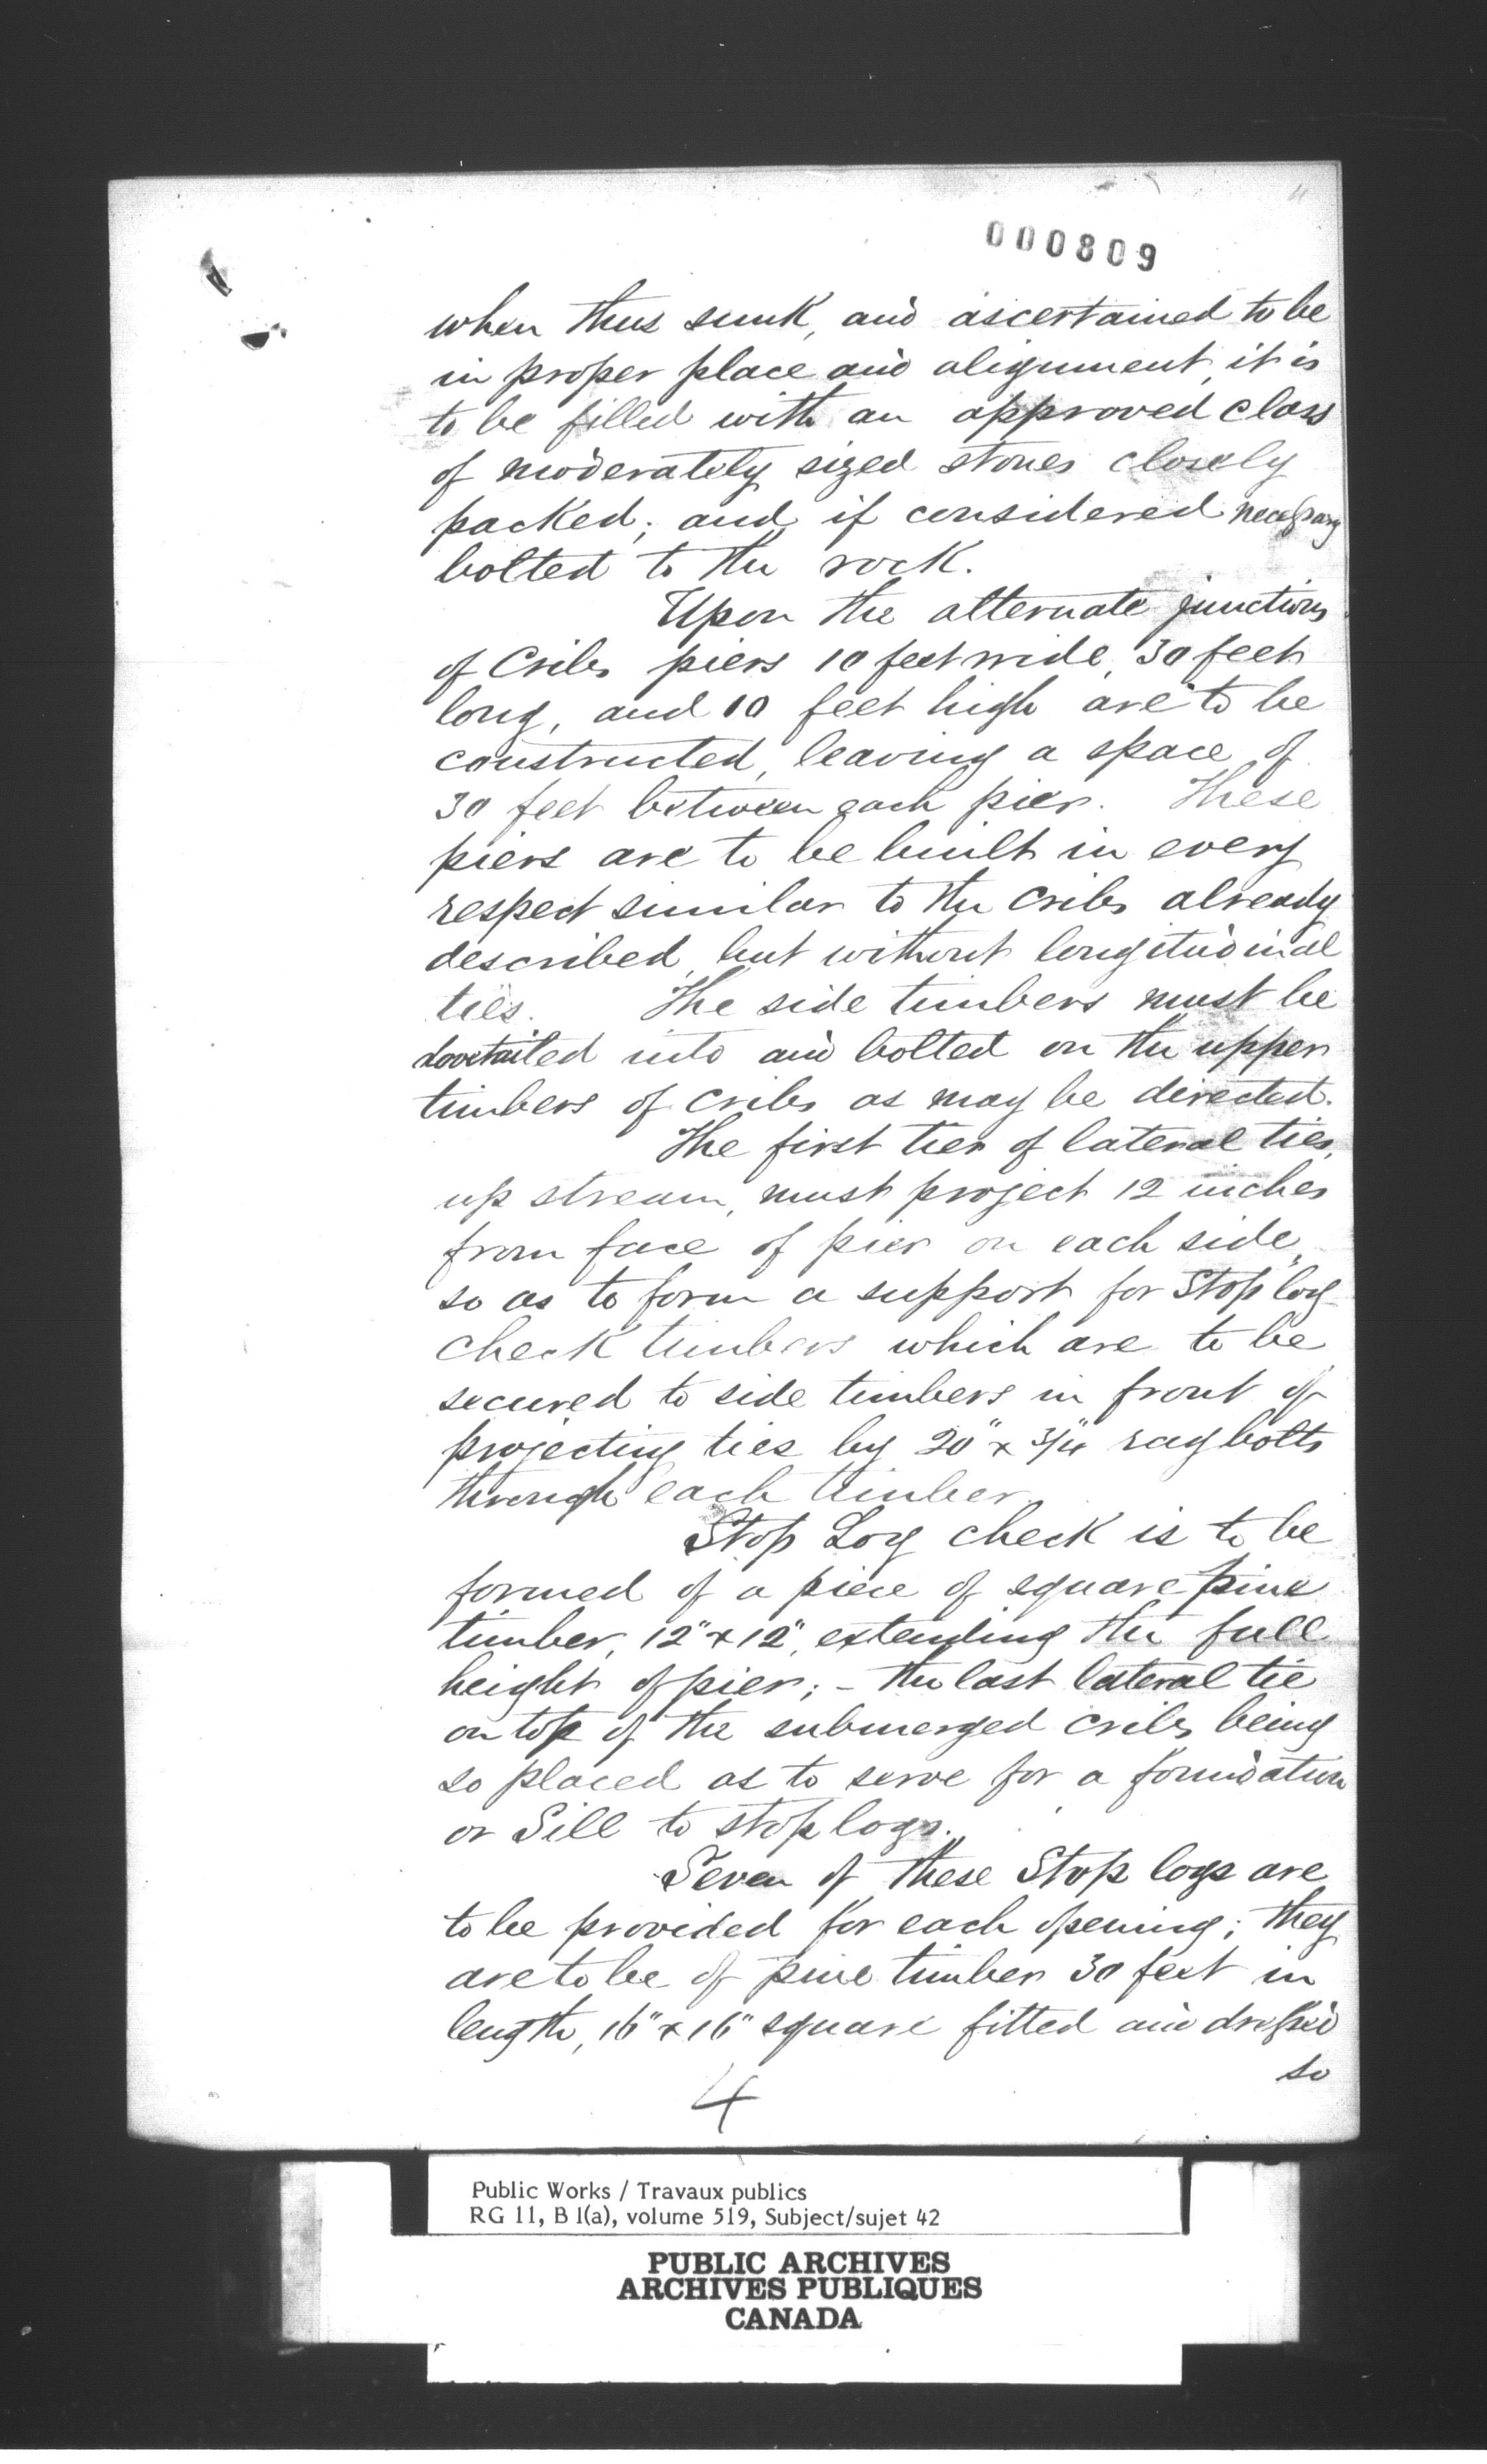 4
000809
when thus sunk, and ascertained to be
in proper place and alignment, it is
to be filled with an approved class
of moderately sized stones closely
packed; and if considered necessary
bolted to the rock.
Upon the alternate junctions
of Cribs piers 10 feet wide, 30 feet
long, and 10 feet high are to be
constructed, leaving a space of
30 feet between each pier. These
piers are to be built in every
respect similar to the Cribs already
described, but without longitudinal
ties. The side timbers must be
dovetailed into and bolted on the upper
timbers of cribs as may be directed.
The first tier of lateral ties,
up stream, must project 12 inches
from face of pier on each side,
so as to form a support for Stop log
check timbers which are to be
secured to side timbers in front of
projecting ties by 20" x 3/4" rag bolts
through each timber.
Stop Log check is to be
formed of a piece of square pine
timber, 12" x 12", extending the full
height of pier; - the last lateral tie
on top of the submerged cribs being
so placed as to serve for a foundation
or Sill to stop logs.
Seven of these Stop logs are
to be provided for each opening; they
are to be of pine timber 30 feet in
length, 16" x 16" square fitted and dressed
so
4
Public Works / Travaux publics
RG 11, B 1(a), volume 519, Subject/sujet 42
PUBLIC ARCHIVES
ARCHIVES PUBLIQUES
CANADA